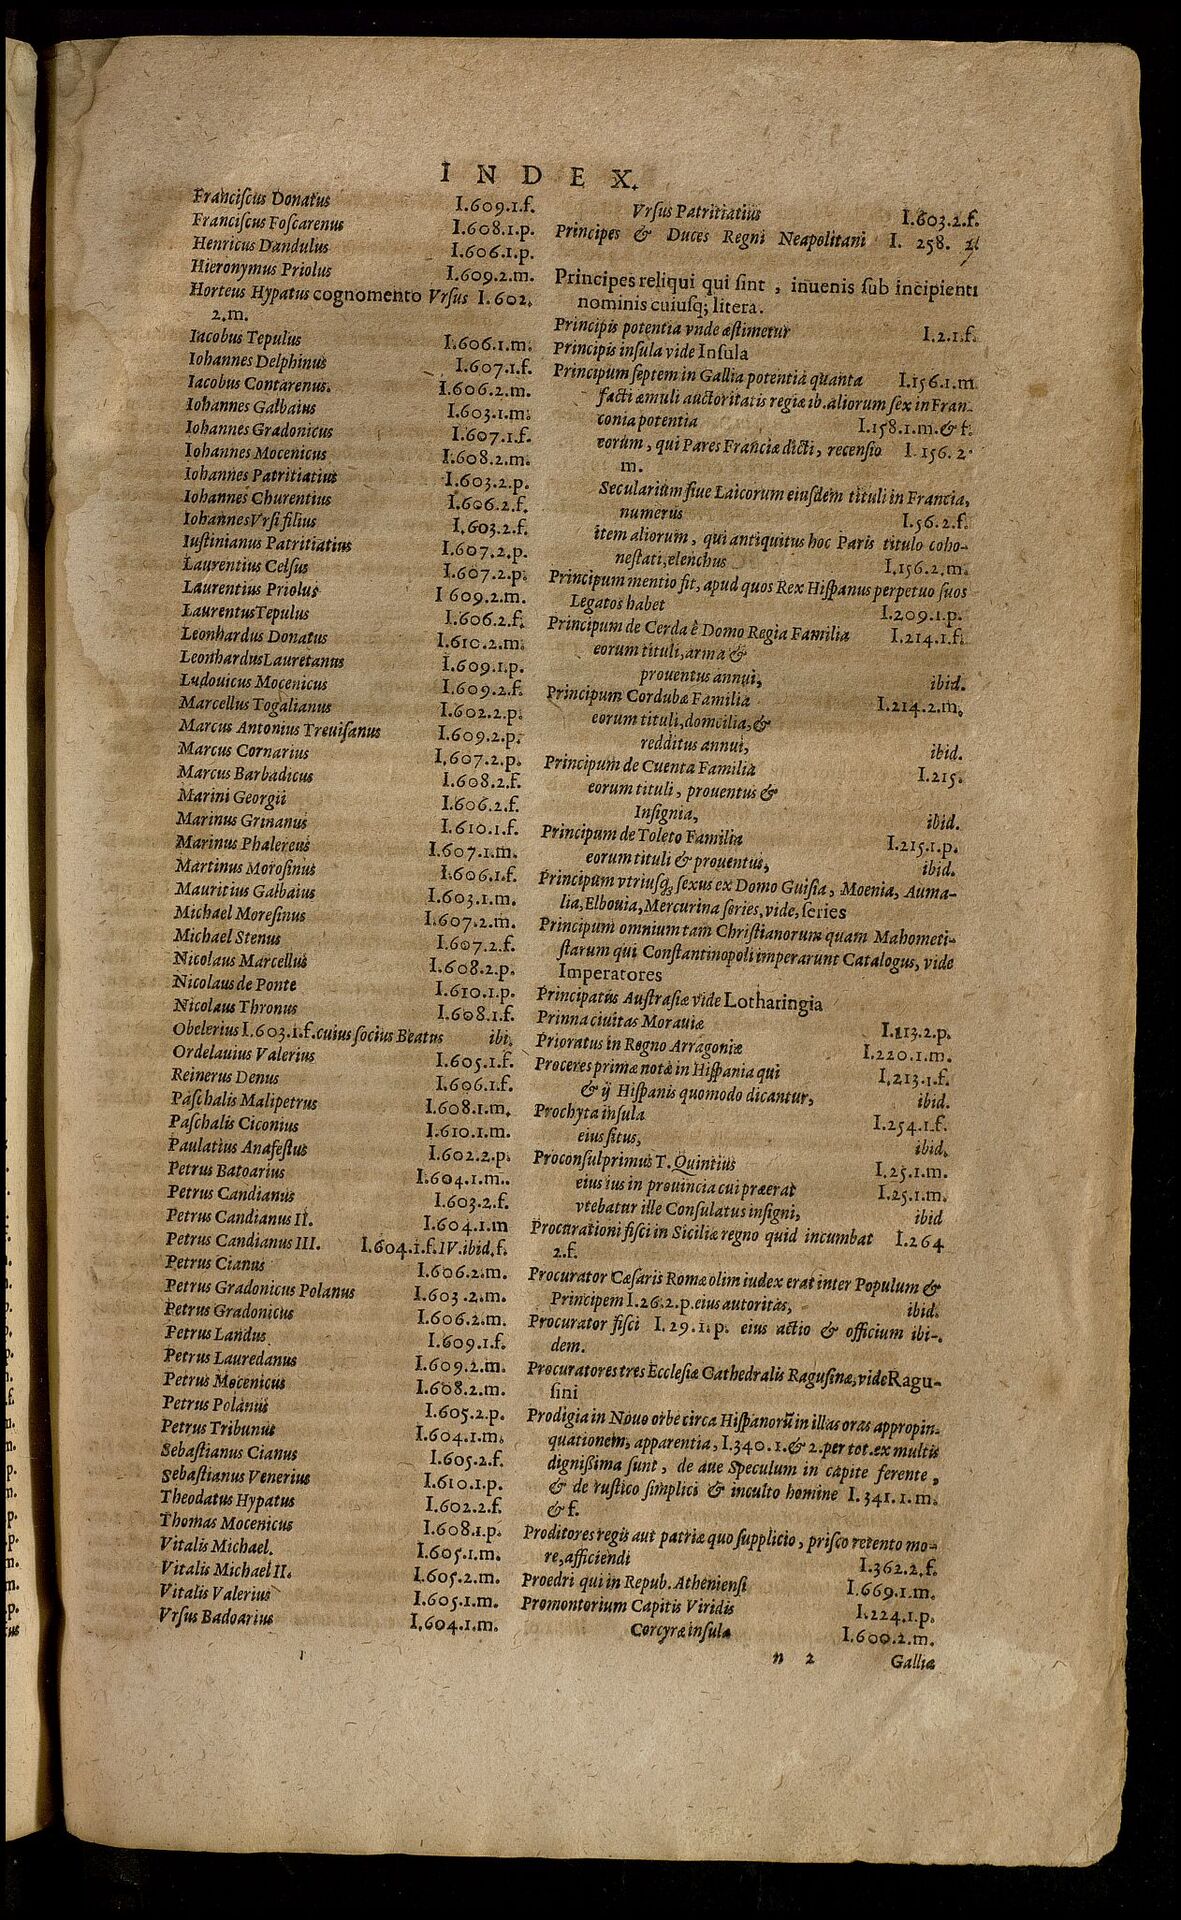 INDEX.
Franciſcus Donatus I.609.1.f.
Franciſcus Foſcarenus I.608.1.p.
Henricus Dandulus I.606.1.p.
Hieronymus Priolus I.609.2.m.
Horteus Hypatus cognomento Vrſus I.602.
2.m.
Iacobus Tepulus I.606.1.m.
Iohannes Delphinus I.607.1.f.
Iacobus Contarenus. I.606.2.m.
Iohannes Galbaius I.603.1.m.
Iohannes Gradonicus I.607.1.f.
Iohannes Mocenicus I.608.2.m.
Iohannes Patritiatius I.603.2.p.
Iohannes Churentius I.606.2.f.
Iohannes Vrſi filius I.603.2.f.
Iuſtinianus Patritiatius I.607.2.p.
Laurentius Celſus I.607.2.p.
Laurentius Priolus I 609.2.m.
Laurentus Tepulus I.606.2.f.
Leonhardus Donatus I.610.2.m.
Leonhardus Lauretanus I.609.1.p.
Ludouicus Mocenicus I.609.2.f.
Marcellus Togalianus I.602.2.p.
Marcus Antonius Treuiſanus I.609.2.p.
Marcus Cornarius I.607.2.p.
Marcus Barbadicus I.608.2.f.
Marini Georgii I.606.2.f.
Marinus Grinanus I.610.1.f.
Marinus Phalereus I.607.1.m.
Martinus Moroſinus I.606.1.f.
Mauritius Galbaius I.603.1.m.
Michael Moreſinus I.607.2.m.
Michael Stenus I.607.2.f.
Nicolaus Marcellus I.608.2.p.
Nicolaus de Ponte I.610.1.p.
Nicolaus Thronus I.608.1.f.
Obelerius I.603.1.f.cuius ſocius Beatus ibi.
Ordelauius Valerius I.605.1.f.
Reinerus Denus I.606.1.f.
Paſchalis Malipetrus I.608.1.m.
Paſchalis Ciconius I.610.1.m.
Paulatius Anafeſtus I.602.2.p.
Petrus Batoarius I.604.1.m..
Petrus Candianus I.603.2.f.
Petrus Candianus II. I.604.1.m
Petrus Candianus III. I.604.1.f.IV.ibid.f.
Petrus Cianus I.606.2.m.
Petrus Gradonicus Polanus I.603.2.m.
Petrus Gradonicus I.606.2.m.
Petrus Landus I.609.1.f.
Petrus Lauredanus I.609.2.m.
Petrus Mocenicus I.608.2.m.
Petrus Polanus I.605.2.p.
Petrus Tribunus I.604.1.m.
Sebaſtianus Cianus I.605.2.f.
Sebaſtianus Venerius I.610.1.p.
Theodatus Hypatus I.602.2.f.
Thomas Mocenicus I.608.1.p.
Vitalis Michael. I.605.1.m.
Vitalis Michael II. I.605.2.m.
Vitalis Valerius I.605.1.m.
Vrſus Badoarius I.604.1.m.
Vrſus Patritiatius I.603.2.f.
Principes & Duces Regni Neapolitani I. 258.
Principes reliqui qui ſint , inuenis ſub incipienti
nominis cuiuſq; litera.
Principis potentia vnde æſtimetur I.2.1.f.
Principis inſula vide Inſula
Principum ſeptem in Gallia potentia quanta I.156.1.m
facti æmuli auctoritatis regiæ ib. aliorum ſex in Fran-
conia potentia I.158.1.m.& f.
eorum, qui Pares Franciæ dicti, recenſio I.156.2.
m.
Secularium ſiue Laicorum eiuſdem tituli in Francia,
numerus I.56.2.f.
item aliorum, qui antiquitus hoc Paris titulo coho-
neſtati, elenchus I.156.2.m.
Principum mentio fit, apud quos Rex Hiſpanus perpetuo ſuos
Legatos habet I.209.1.p.
Principum de Cerda è Domo Regia Familia I.214.1.f.
eorum tituli, arma &
prouentus annui, ibid.
Principum Cordubæ Familia I.214.2.m.
eorum tituli, domcilia, &
redditus annui, ibid.
Principum de Cuenta Familia I.215.
eorum tituli , prouentus &
Inſignia, ibid.
Principum de Toleto Familia I.215.1.p.
eorum tituli & prouentus, ibid.
Principum vtriuſq; ſexus ex Domo Guiſia, Moenia, Auma-
lia, Elbouia, Mercurina ſeries, vide, ſeries
Principum omnium tam Chriſtianorum quam Mahometi-
ſtarum qui Conſtantinopoli imperarunt Catalogus, vide
Imperatores
Principatus Auſtraſiæ vide Lotharingia
Prinna ciuitas Morauiæ I.113.2.p.
Prioratus in Regno Arragoniæ I.220.1.m.
Proceres primæ notæ in Hiſpania qui I.213.1.f.
& ij Hiſpanis quomodo dicantur, ibid.
Prochyta inſula I.254.1.f.
eius ſitus, ibid.
Proconſul primus T. Quintius I.25.1.m.
eius ius in prouincia cui præerat I.25.1.m.
vtebatur ille Conſulatus inſigni, ibid
Procurationi fiſci in Siciliæ regno quid incumbat I.264
2.f.
Procurator Cæſaris Romæ olim iudex erat inter Populum &
Principem I.26.2.p. eius autoritas, ibid.
Procurator fiſci I.29.1.p. eius actio & officium ibi-
dem.
Procuratores tres Eccleſiæ Cathedralis Raguſinæ, vide Ragu-
ſini
Prodigia in Nouo orbe circa Hiſpanorũ in illas oras appropin-
quationem, apparentia, I.340.1.& 2.per tot.ex multis
digniſſima ſunt , de aue Speculum in capite ferente ,
& de ruſtico ſimplici & inculto homine I.341.1.m.
& f.
Proditores regis aut patriæ quo ſupplicio, priſco retento mo-
re, afficiendi I.362.2.f.
Proedri qui in Repub. Athenienſi I.669.1.m.
Promontorium Capitis Viridis I.224.1.p.
Corcyræ inſula I.600.2.m.
n 2 Galliæ